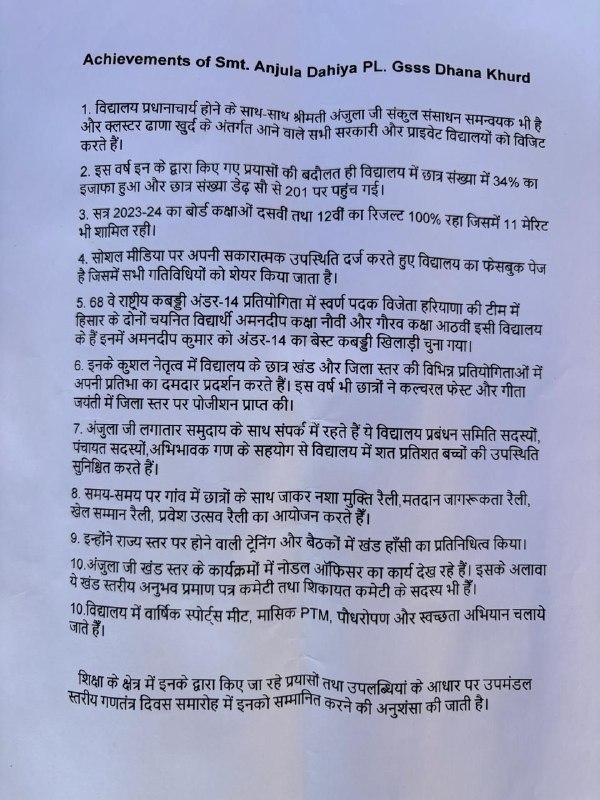 Achievements of Smt. Anjula Dahiya PL. Gsss Dhana Khurd
1. विद्यालय प्रधानाचार्य होने के साथ-साथ श्रीमती अंजुला जी संकुल संसाधन समन्वयक भी है
और क्लस्टर ढाणा खुर्द के अंतर्गत आने वाले सभी सरकारी और प्राइवेट विद्यालयों को विजिट
करते हैं।
2. इस वर्ष इन के द्वारा किए गए प्रयासों की बदौलत ही विद्यालय में छात्र संख्या में 34% का
इजाफा हुआ और छात्र संख्या डेढ़ सौ से 201 पर पहुंच गई।
3. सत्र 2023-24 का बोर्ड कक्षाओं दसवीं तथा 12वीं का रिजल्ट 100% रहा जिसमें 11 मेरिट
भी शामिल रही।
4. सोशल मीडिया पर अपनी सकारात्मक उपस्थिति दर्ज करते हुए विद्यालय का फेसबुक पेज
है जिसमें सभी गतिविधियों को शेयर किया जाता है।
5. 68 वे राष्ट्रीय कबड्डी अंडर-14 प्रतियोगिता में स्वर्ण पदक विजेता हरियाणा की टीम में
हिसार के दोनों चयनित विद्यार्थी अमनदीप कक्षा नौवीं और गौरव कक्षा आठवीं इसी विद्यालय
के हैं इनमें अमनदीप कुमार को अंडर-14 का बेस्ट कबड्डी खिलाड़ी चुना गया।
6. इनके कुशल नेतृत्व में विद्यालय के छात्र खंड और जिला स्तर की विभिन्न प्रतियोगिताओं में
अपनी प्रतिभा का दमदार प्रदर्शन करते हैं। इस वर्ष भी छात्रों ने कल्चरल फेस्ट और गीता
जयंती में जिला स्तर पर पोजीशन प्राप्त की।
7. अंजुला जी लगातार समुदाय के साथ संपर्क में रहते हैं ये विद्यालय प्रबंधन समिति सदस्यों,
पंचायत सदस्यों,अभिभावक गण के सहयोग से विद्यालय में शत प्रतिशत बच्चों की उपस्थिति
सुनिश्चित करते हैं।
8. समय-समय पर गांव में छात्रों के साथ जाकर नशा मुक्ति रैली,मतदान जागरूकता रैली,
खेल सम्मान रैली, प्रवेश उत्सव रैली का आयोजन करते हैं।
9. इन्होंने राज्य स्तर पर होने वाली ट्रेनिंग और बैठकों में खंड हाँसी का प्रतिनिधित्व किया।
10.अंजुला जी खंड स्तर के कार्यक्रमों में नोडल ऑफिसर का कार्य देख रहे हैं। इसके अलावा
ये खंड स्तरीय अनुभव प्रमाण पत्र कमेटी तथा शिकायत कमेटी के सदस्य भी हैं।
10.विद्यालय में वार्षिक स्पोर्ट्स मीट, मासिक PTM, पौधरोपण और स्वच्छता अभियान चलाये
जाते हैं।
शिक्षा के क्षेत्र में इनके द्वारा किए जा रहे प्रयासों तथा उपलब्धियां के आधार पर उपमंडल
स्तरीय गणतंत्र दिवस समारोह में इनको सम्मानित करने की अनुशंसा की जाती है।